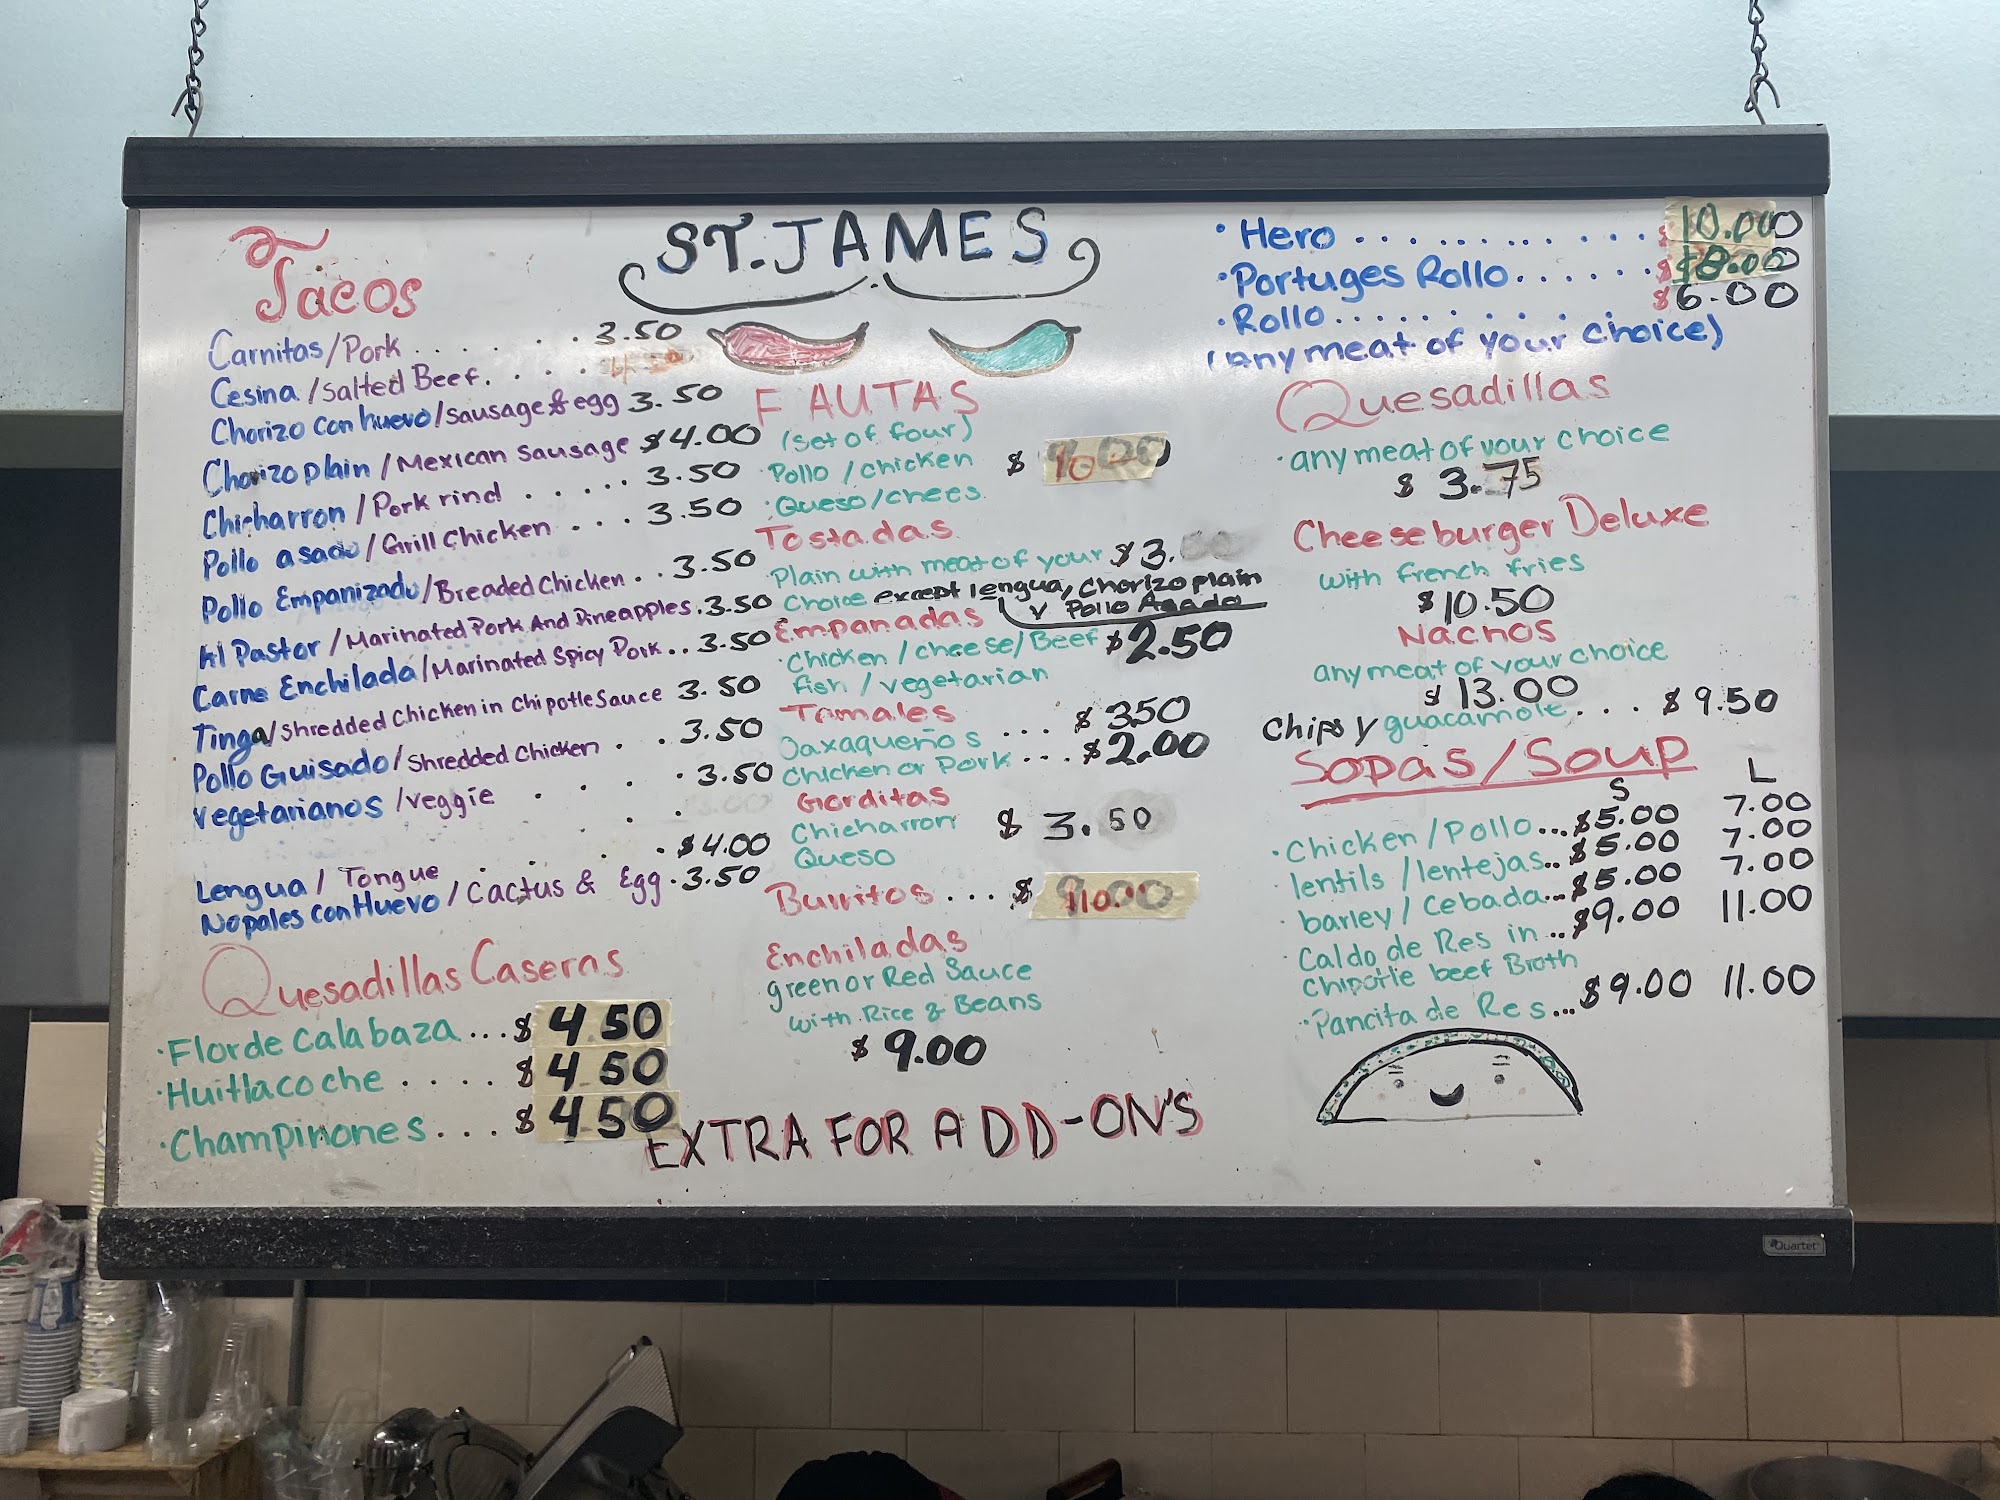 ST. JAMES
Tacos
Carnitas/Pork . . . . . . . 3.50
Cesina/Salted Beef. . . . .
Chorizo con huevo/sausage & egg 3.50
Chorizo plain/Mexican Sausage $4.00
Chicharron/Pork rind . . . . . 3.50
Pollo asado/Grill Chicken . . . 3.50
Pollo Empanizado/Breaded Chicken . . 3.50
Al Pastor/Marinated Pork And Pineapples . 3.50
Carne Enchilada/Marinated Spicy Pork . . 3.50
Tinga/Shredded Chicken in Chipotle Sauce 3.50
Pollo Guisado/Shredded Chicken . . 3.50
Vegetarianos/veggie . . . . 3.50
Lengua/Tongue . . . . $4.00
Nopales con Huevo/Cactus & Egg . 3.50
Quesadillas Caseras
·Flor de Calabaza ... $ 4 50
·Huitlacoche . . . . $ 4 50
·Champinones . . . $ 4 50
F AUTAS
(set of four)
·Pollo/chicken $ 10
·Queso/chees
Tostadas
Plain with meat of your $3.
Choice except lengua, Chorizo plain
y Pollo Asado
Empanadas
·Chicken/cheese/Beef $2.50
fish/vegetarian
Tamales
Oaxaqueños ... $ 350
Chicken or Pork ... $2.00
Gorditas
Chicharron $ 3.50
Queso
Burritos ... $ 10.00
Enchiladas
green or Red Sauce
with Rice & Beans
$ 9.00
EXTRA FOR ADD-ON'S
·Hero . . . . . . . . . . . . $ 10.00
·Portuges Rollo . . . . . . $8.00
·Rollo . . . . . . . . . $6.00
(Any meat of your choice)
Quesadillas
·any meat of your choice
$ 3.75
Cheeseburger Deluxe
with french fries
$10.50
Nachos
any meat of your choice
$ 13.00
Chips y guacamole . . . $ 9.50
Sopas/Soup
S L
·Chicken/Pollo ... $5.00 7.00
lentils/lentejas .. $5.00 7.00
·barley/Cebada ... $5.00 7.00
Caldo de Res in .. $9.00 11.00
Chipotle beef Broth
·Pancita de Res ... $9.00 11.00
Quartet